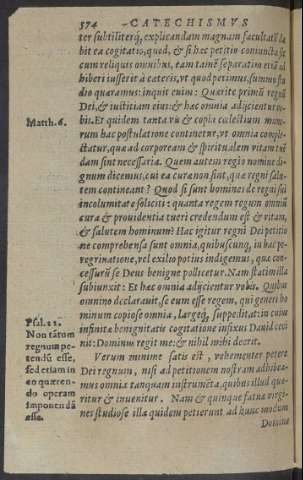 574 CATECHISMVS
ter subtiliterq́, explicandam magnam facultatẽ ha
bit ea cogitatio, quod, & si hæc petitio coniuncta sit
cum reliquis omnibus, tam tamẽ separatim etiã ad
hiberi iusserit à cæteris, vt quod petimus, summo stu
dio quæramus: inquit enim: Quærite primũ regnũ
Dei, & iustitiam eius: & hæc omnia adijcientur vo-
Matth. 6.
bis. Et quidem tanta vis & copia cælestium mune-
rum hac postulatione continetur, vt omnia comple-
ctatur, quæ ad corpoream & spiritualem vitam tuẽ
dam sint necessaria. Quem autem regio nomine di-
gnum dicemus, cui ea curæ non sint, quæ regni salu-
tem contineant? Quod si sunt homines de regni sui
incolumitate soliciti: quanta regem regum omniũ
cura & prouidentia tueri credendum est & vitam,
& salutem hominum? Hac igitur regni Dei petitio
ne comprehensa sunt omnia, quibuscunq́, in hac pe-
regrinatione, vel exilio potius indigemus, quæ con-
cessurũ se Deus benigne pollicetur. Nam statim illa
subiunxit: Et hæc omnia adijcientur vobis. Quibus
omnino declarauit, se eum esse regem, qui generi ho
minum copiose omnia, largeq́, suppeditat: in cuius
infinita benignitatis cogitatione infixus Dauid ceci
nit: Dominus regit me: & nihil mihi deerit.
Psal. 22.
Non tãtom
regnum pe-
tendũ esse,
sed etiam in
eo quæren-
do operam
imponendã
esse.
Verum minime satis est, vehementer petere
Dei regnum, nisi ad petitionem nostram adhibea-
mus omnia tanquam instrumẽta, quibus illud quæ-
ritur & inuenitur. Nam & quinque fatuæ virgi-
nes studiose illæ quidem petierunt ad hunc modum
Domine